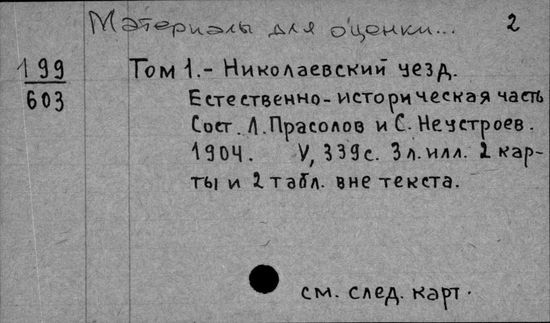 Материалы для оценки... 2
199
603
Том 1.- Николаевский уезд.
Естественно-историческая часть
Сост. Л.Прасолов и С. Неустроев.
1904. V, 339с. 3л.илл. 2 кар-
ты и 2 табл. вне текста.
см. след. карт.